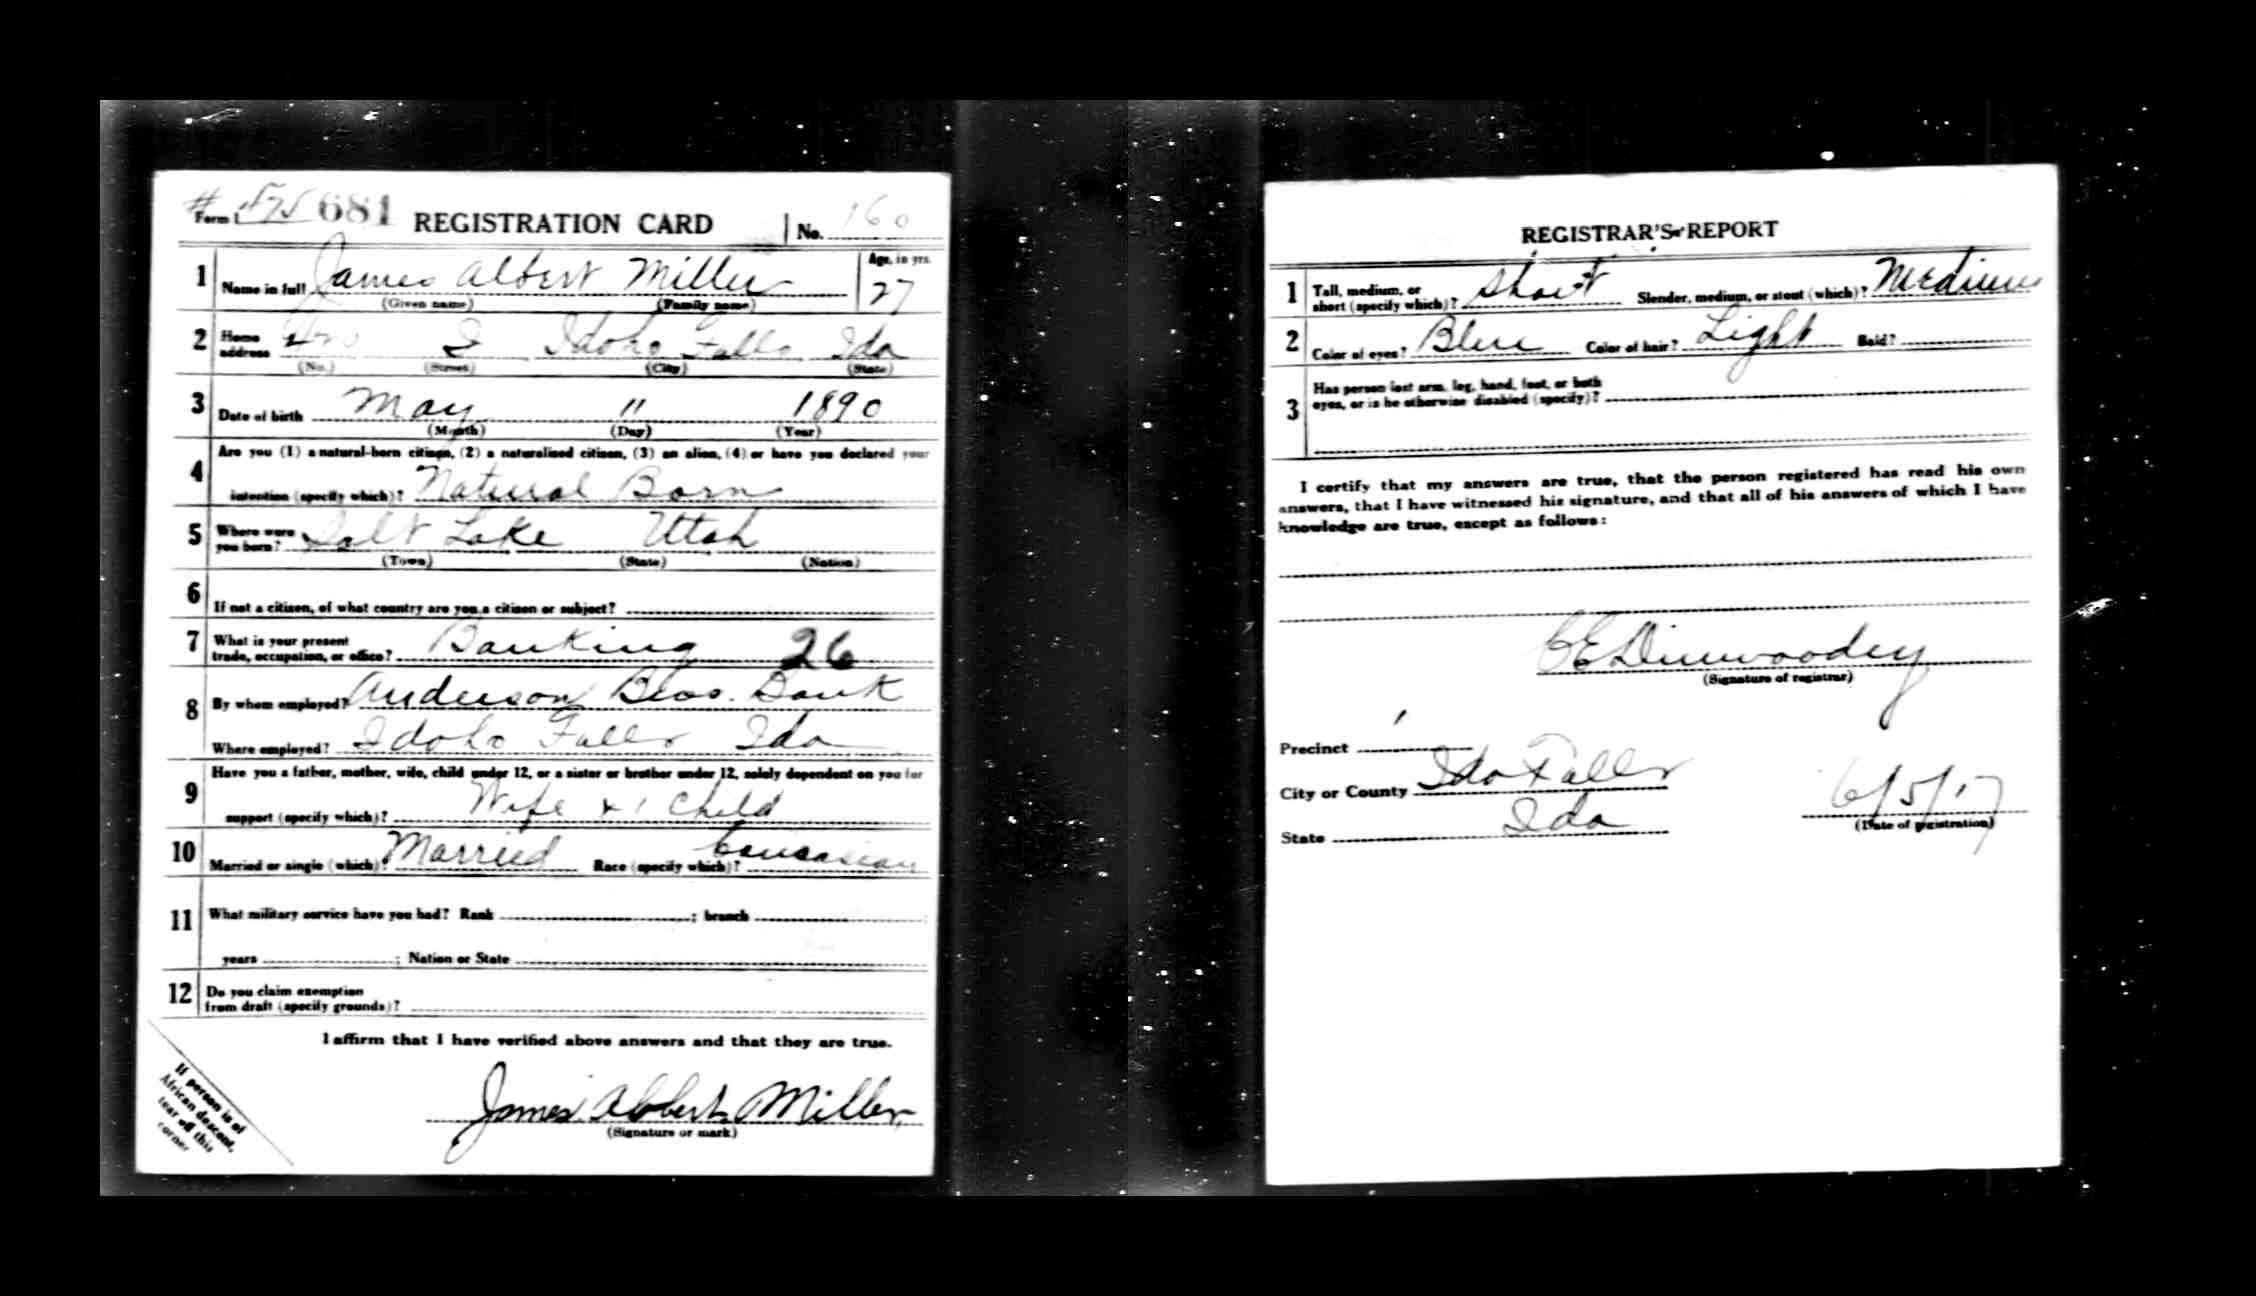 # 575 681
Form 1 REGISTRATION CARD No. 160
1 Name in full James Albert Miller Age, in yrs. 27
(Given name) (Family name)
2 Home address 420 I Idaho Falls Ida
(No.) (Street) (City) (State)
3 Date of birth May 11 1890
(Month) (Day) (Year)
4 Are you (1) a natural-born citizen, (2) a naturalized citizen, (3) an alien, (4) or have you declared your
intention (specify which)? Natural Born
5 Where were you born? Salt Lake Utah
(Town) (State) (Nation)
6 If not a citizen, of what country are you a citizen or subject?
7 What is your present trade, occupation, or office? Banking 26
8 By whom employed? Anderson Bros. Bank
Where employed? Idaho Falls Ida
9 Have you a father, mother, wife, child under 12, or a sister or brother under 12, solely dependent on you for
support (specify which)? Wife + 1 Child
10 Married or single (which)? Married Race (specify which)? Caucasian
11 What military service have you had? Rank ; branch ;
years ; Nation or State
12 Do you claim exemption
from draft (specify grounds)?
I affirm that I have verified above answers and that they are true.
James Albert Miller
(Signature or mark)
If person is of
African descent,
tear off this
corner
REGISTRAR'S REPORT
1 Tall, medium, or short (specify which)? Short Slender, medium, or stout (which)? Medium
2 Color of eyes? Blue Color of hair? Light Bald?
3 Has person lost arm, leg, hand, foot, or both
eyes, or is he otherwise disabled (specify)?
I certify that my answers are true, that the person registered has read his own
answers, that I have witnessed his signature, and that all of his answers of which I have
knowledge are true, except as follows:
CE Dinwoodey
(Signature of registrar)
Precinct 1
City or County Ida Falls
State Ida
6/5/17
(Date of registration)